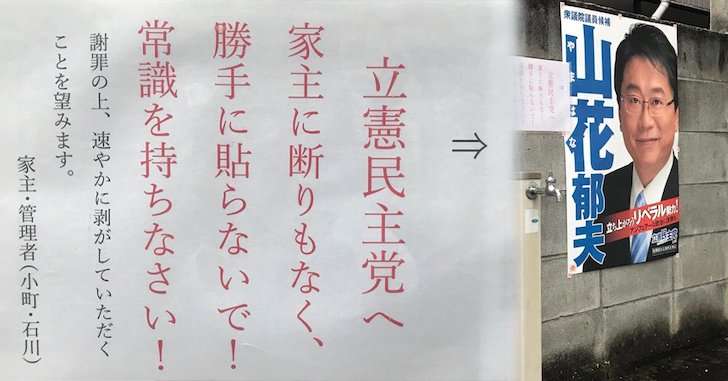 立憲民主党へ
家主に断りもなく、
勝手に貼らないで！
常識を持ちなさい！
謝罪の上、速やかに剥がしていただく
ことを望みます。
家主・管理者（小町・石川）
⇒
衆議院議員候補
山花郁夫
やまはな
立ち上がろうリベラル勢力！
立憲民主党